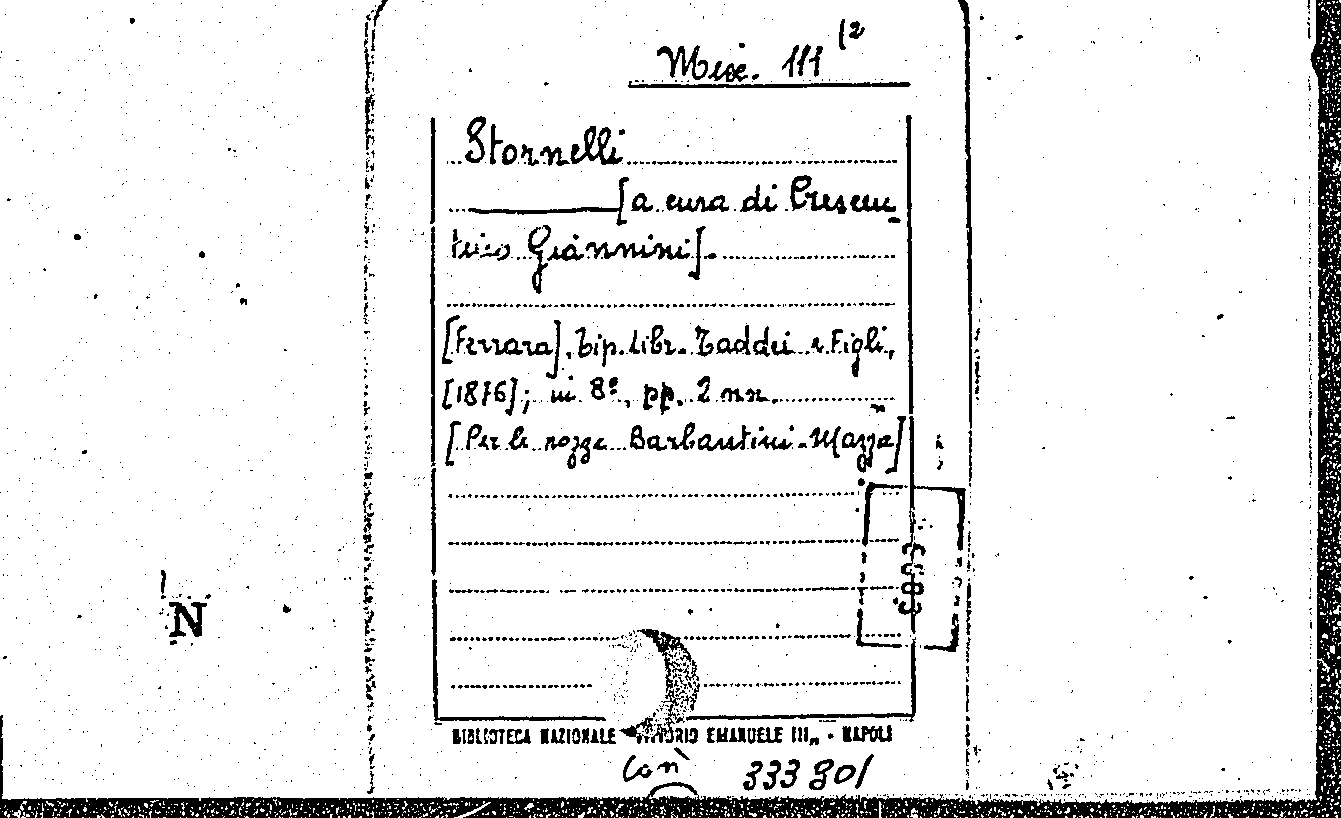 Misc. 111 (2
Stornelli
[a cura di Crescen-
tino Giannini].
[Ferrara], Tip. Libr. Taddei e Figli,
[1876]; in 8º, pp. 2 nn.
[Per le nozze Barbantini-Mazzè]
N
BIBLIOTECA NAZIONALE "VITTORIO EMANUELE III" - NAPOLI
333 801